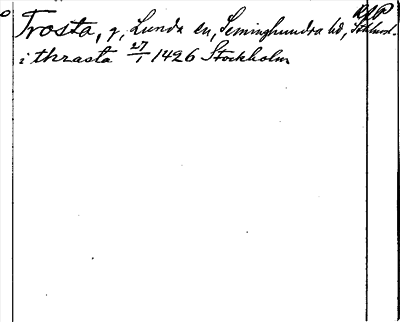 RAP
Trosta, g, Lunda sn, Seminghundra hd, Stkhmsl.
i thrasta 27/1 1426 Stockholm